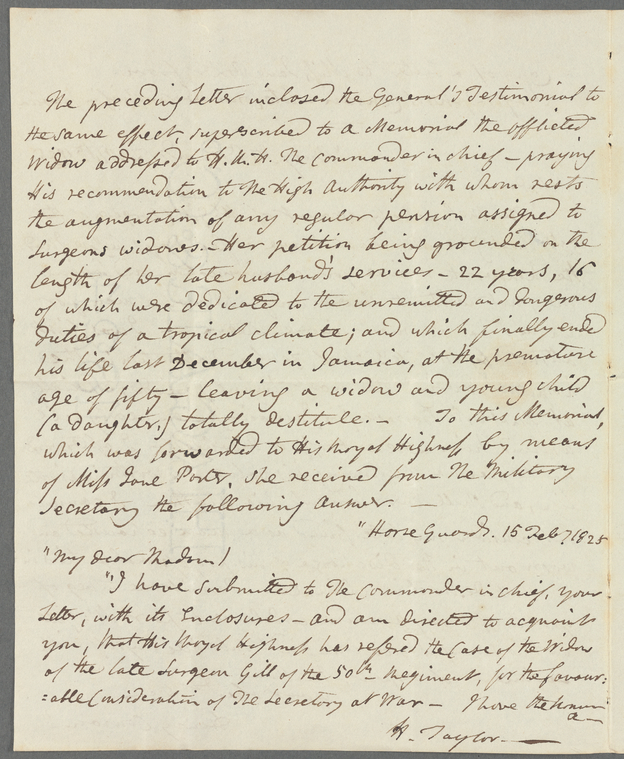 The preceding Letter inclosed the General's Testimonial to
the same effect, superscribed to a Memorial the afflicted
Widow addressed to H.R.H. The Commander in chief – praying
His recommendation to The High Authority with whom rests
the augmentation of any regular pension assigned to
Surgeons widows. – Her petition being grounded on the
length of her late husband's services – 22 years, 16
of which were dedicated to the unremitted and dangerous
duties of a tropical climate; and which finally ended
his life last December in Jamaica, at the premature
age of fifty – leaving a widow and young child
(a daughter,) totally destitute. – To this Memorial,
which was forwarded to His Royal Highness by means
of Miss Jane Porter, she received from The Military
Secretary the following Answer. –
"Horse Guards. 15 Feby 1825
"My dear Madam/
"I have submitted to The Commander in chief, your
Letter, with its Enclosures – and am directed to acquaint
you, that His Royal Highness has refered the Case of the Widow
of the late Surgeon Gill of the 50th Regiment, for the favour:
:able Consideration of The Secretary at War – I have the honour
H. Taylor. –